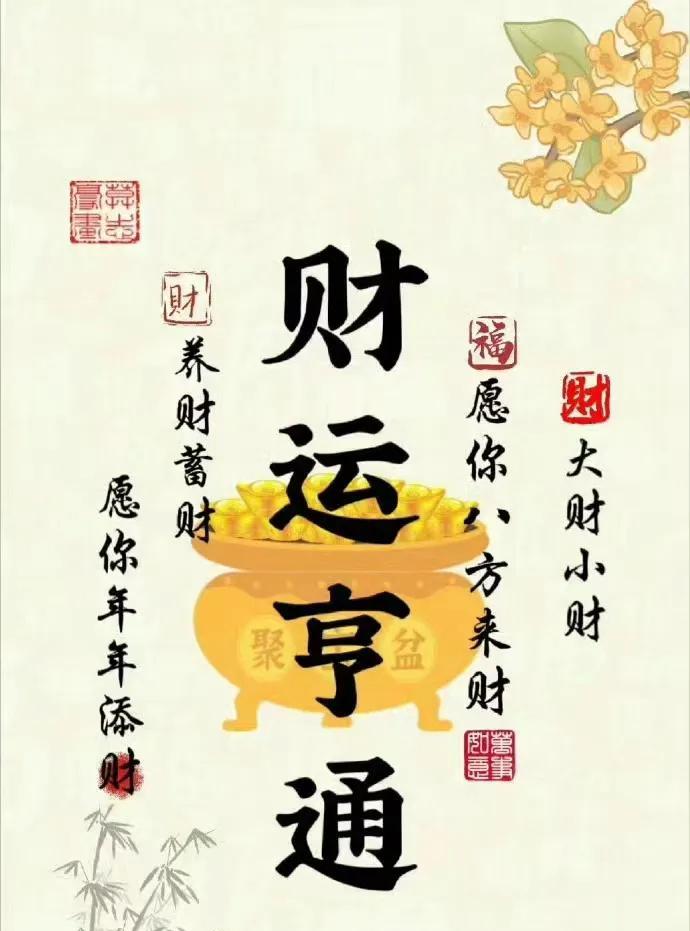 財
大财小财
福
愿你八方来财
萬事如意
财运亨通
聚
盆
財
养财蓄财
愿你年年添财